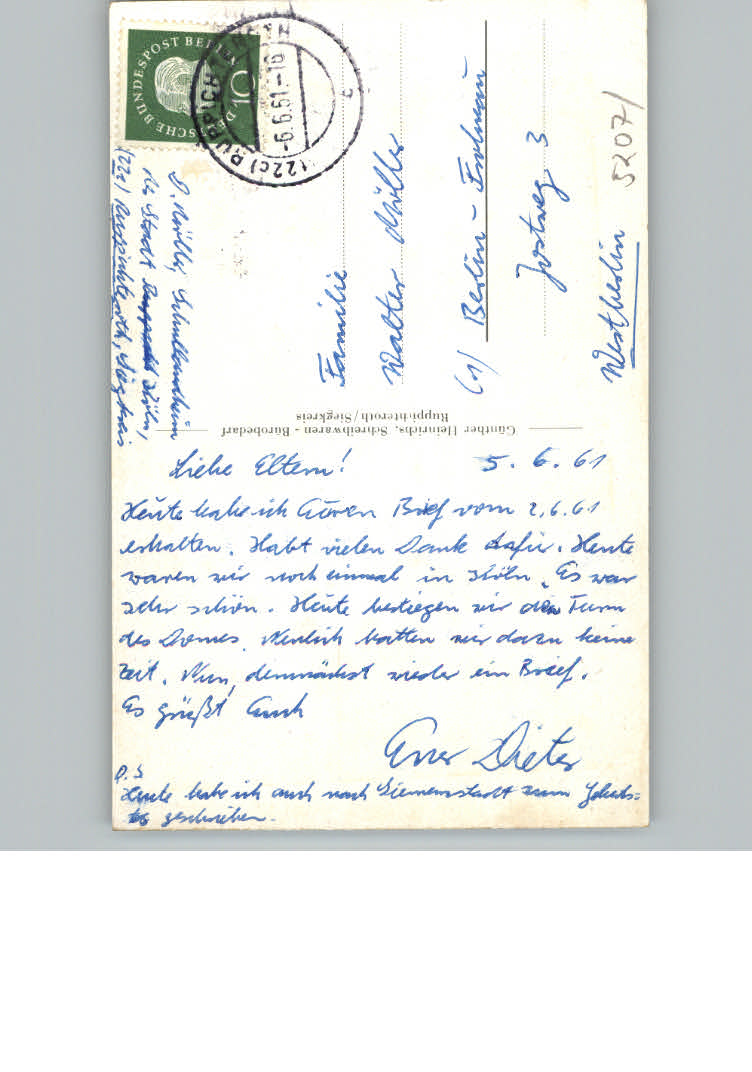 Liebe Eltern! 5. 6. 61
Heute habe ich Euren Brief vom 2.6.61
erhalten. Habt vielen Dank dafür. Heute
waren wir noch einmal in Köln. Es war
sehr schön. Heute bestiegen wir den Turm
des Domes. Neulich hatten wir dazu keine
Zeit. Nun, demnächst wieder ein Brief.
Es grüßt Euch
Euer Dieter
P.S
Heute habe ich auch nach Siemensstadt zum Geburts=
tag geschrieben.
Familie
Walter Müller
(1) Berlin - Frohnau
Jostweg 3
Westberlin
5207/
D. Müller, Schullandheim
der Stadt Köln,
(22c) Ruppichteroth, Siegkreis
Günther Heinrichs, Schreibwaren - Bürobedarf
Ruppichteroth/Siegkreis
DEUTSCHE BUNDESPOST BERLIN
10
(22c) RUPPICHTEROTH
-6.6.61.-16
c